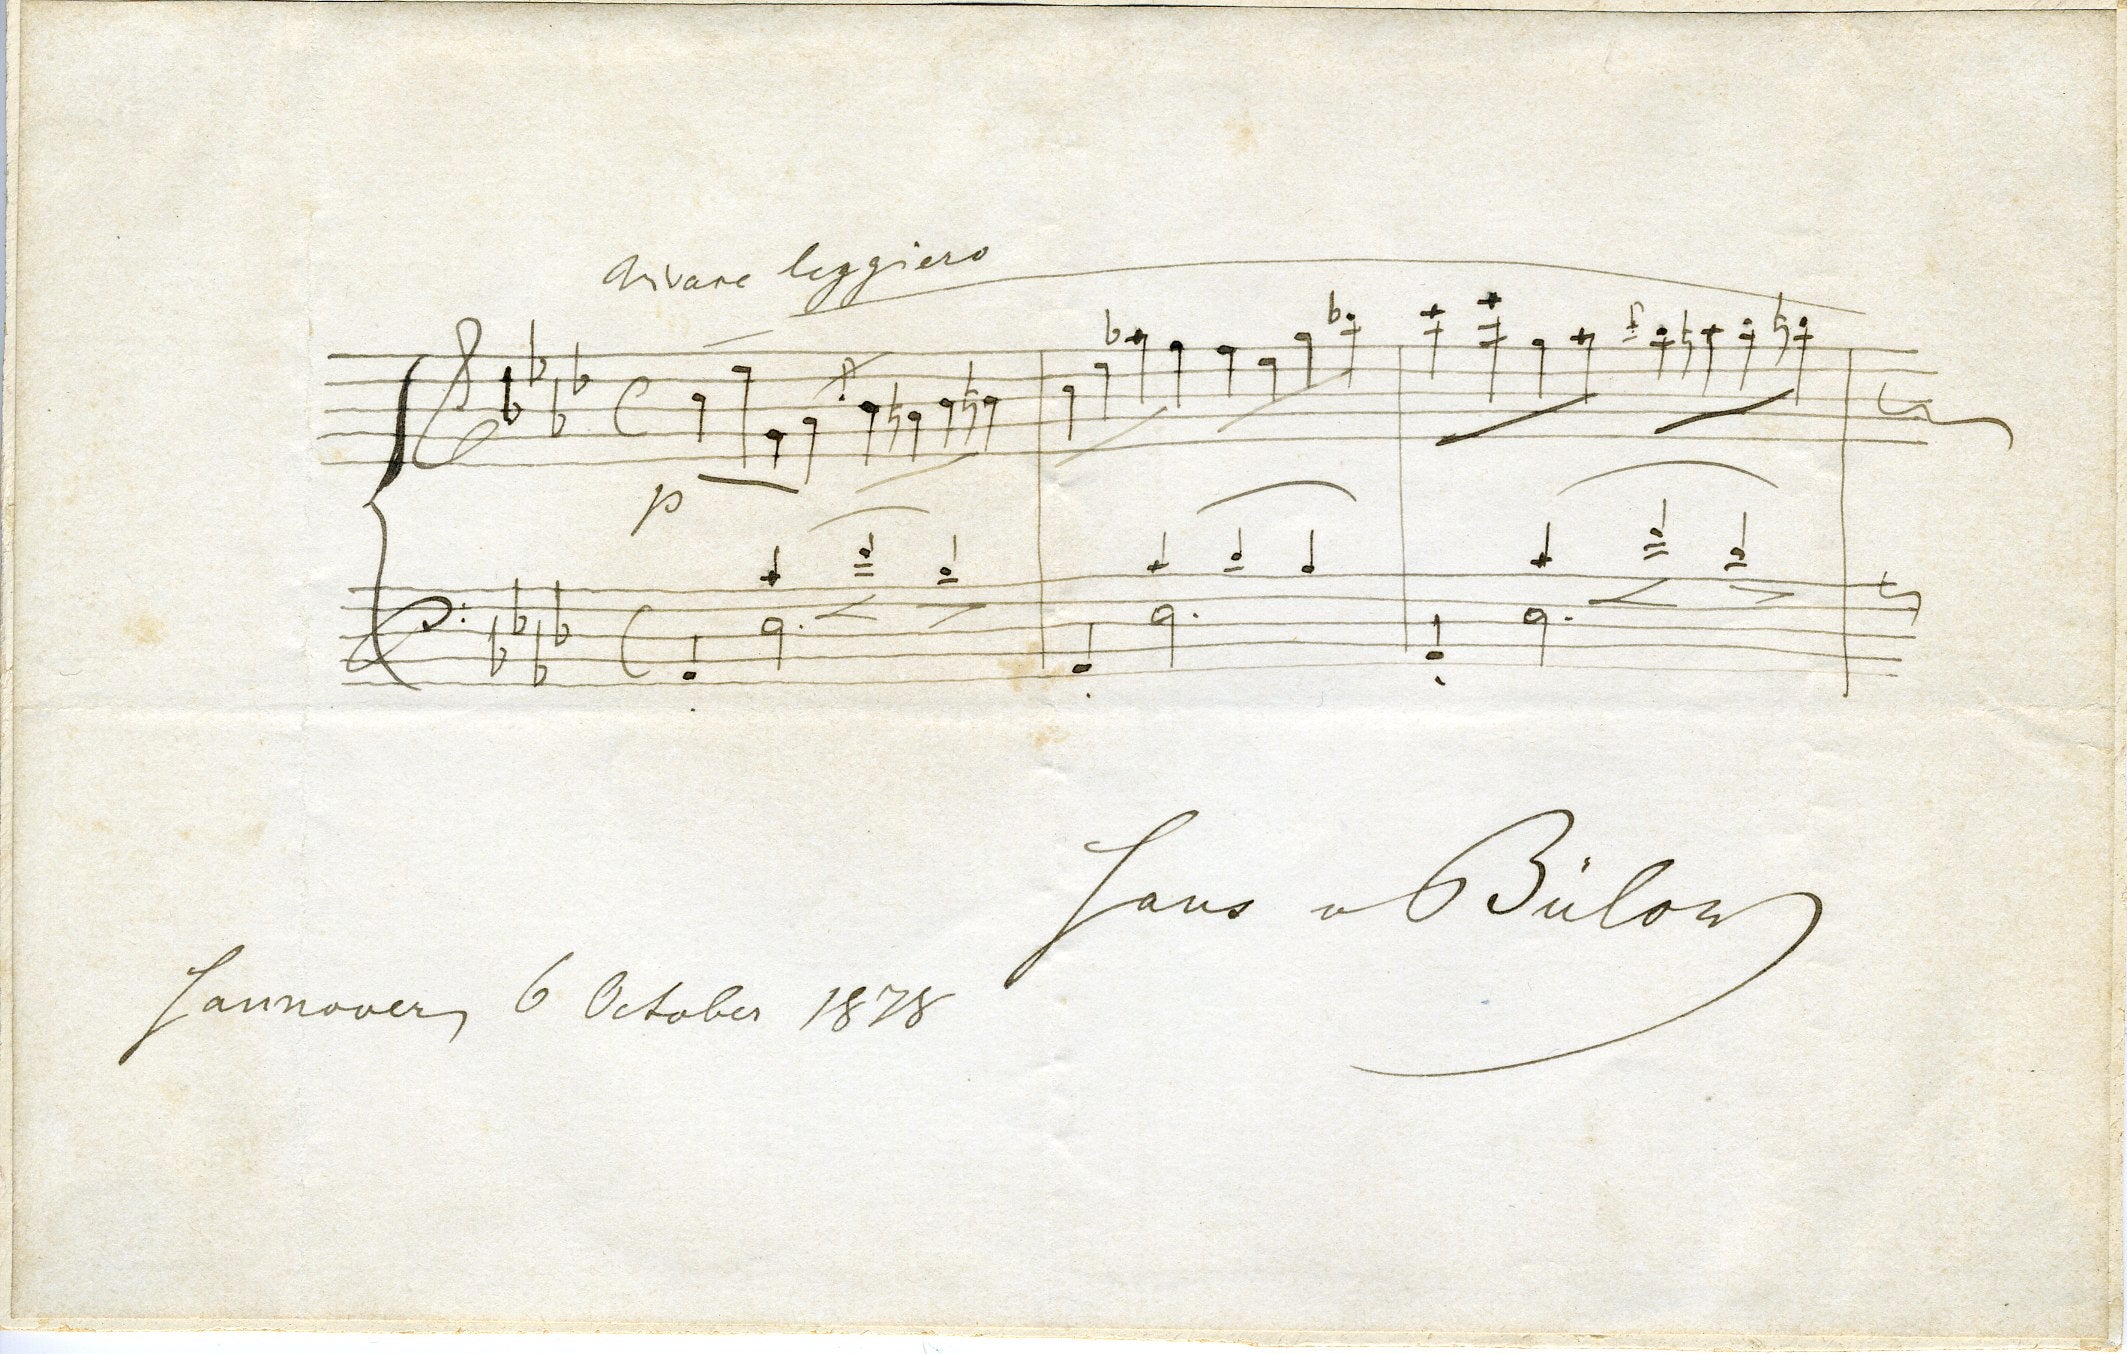 vivace leggiero
p
Hans v Bülow
Hannover, 6 October 1878